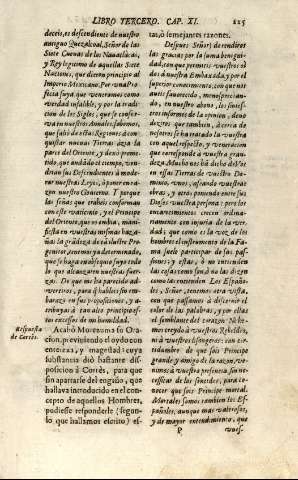 LIBRO TERCERO. CAP. XI. 225
deceis, es descendiente de nuestro
antiguo Quezalcoal, Señor de las
Siete Cuevas de los Navatlácas,
y Rey legitimo de aquellas Siete
Naciones, que dieron principio al
Imperio Mexicano. Por una Pro-
fecia suya, que veneramos como
verdad infalible, y por la tradi-
cion de los Siglos, que se conser-
va en nuestros Annales, sabemos,
que saliò de estas Regiones à con-
quistar nuevas Tierras àzia la
parte del Oriente, y dexò prome-
tido, que andando el tiempo, ven-
drian sus Descendientes à mode-
rar nuestras Leyes, ò poner en ra-
zon nuestro Govierno. Y porque
las señas que traheis conforman
con este vaticinio, y el Principe
del Oriente, que os embia, mani-
fiesta en vuestras mismas haza-
ñas la grandeza de tan ilustre Pro-
genitor, tenemos ya determinado,
que se haga en obsequio suyo todo
lo que alcanzaren nuestras fuer-
zas. De que me ha parecido ad-
vertiros, para que hableis sin em-
barazo en sus proposiciones, y a-
tribuyais à tan alto principio es-
tos excessos de mi humanidad.
Acabò Motezuma su Ora-
cion, previniendo el oydo con
entereza, y magestad; cuya
substancia diò bastante dis-
posicion à Cortès, para que
sin apartarse del engaño, que
hallava introducido en el con-
cepto de aquellos Hombres,
pudiesse responderle (segun
lo que hallamos escrito) es-
Respuesta
de Cortès.
tas, ò semejantes razones.
Despues Señor de rendiros
las gracias por la suma benigni-
dad, con que permitis vuestros oì-
dos à nuestra Embaxada, y por el
superior conocimiento, con que nos
aveis favorecido, menosprecian-
do, en nuestro abono, los sinies-
tros informes de la opinion, devo
deziros que tambien, à cerca de
nosotros se ha tratado la vuestra
con aquel respeto, y veneracion
que corresponde à vuestra gran-
deza. Mucho nos hà dicho de Vos
en essas Tierras de vuestro Do-
minio, unos, afeando vuestras
obras, y otros poniendo entre sus
Dioses vuestra persona: pero los
encarecimientos crecen ordina-
riamente con injuria de la ver-
dad; que como es la voz de los
hombres el instrumento de la Fa-
ma suele participar de sus pas-
siones; y estas, ò no entienden
las cosas como son, ò no las dizen
como las entienden. Los Españo-
les, Señor, tenemos otra vista,
con que passamos à discernir el
color de las palabras, y por ellas
el semblante del corazon. Ni he-
mos creydo à vuestros Rebeldes,
ni à vuestros lisongeros: con cer-
tidumbre de que sois Principe
grande, y amigo de la razon, ve-
nimos à vuestra presencia, sin ne-
cessitar de los sentidos, para co-
nocer que sois Principe mortal.
Mortales somos tambien los Es-
pañoles, aunque mas valerosos,
y de mayor entendimiento, que
P vues-